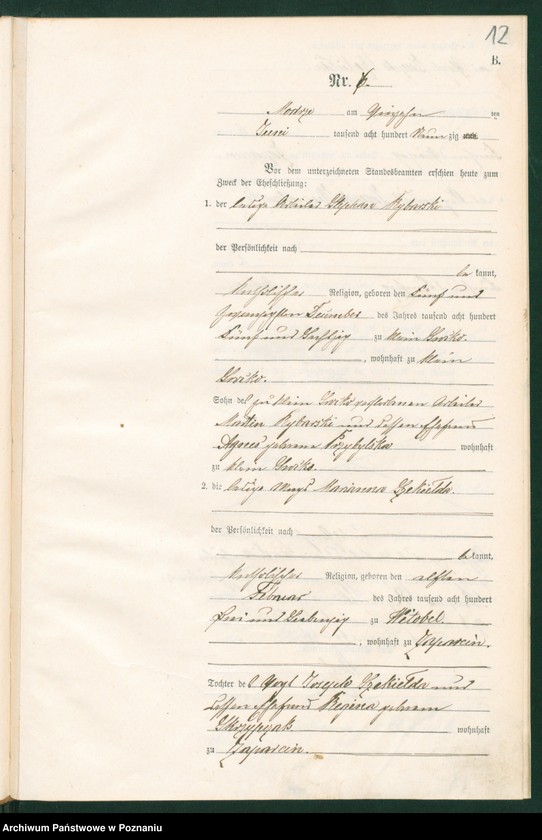 12
B.
Nr. 6.
Modrze am
Juni tausend acht hundert Neun zig
Vor dem unterzeichneten Standesbeamten erschien heute zum
Zweck der Eheschließung:
1. der ledige Arbeiter Stephan Rybarski
der Persönlichkeit nach
be kannt,
katholischer Religion, geboren den fünf und
zwanzigsten Dezember des Jahres tausend acht hundert
fünf und sechszig zu klein
, wohnhaft zu klein
Sohn des zu klein verstorbenen Arbeiter
Martin Rybarski und dessen Ehefrau
Agnes geborene Przybylska wohnhaft
zu klein
2. die ledige Magd Marianna
der Persönlichkeit nach
be kannt,
katholischer Religion, geboren den elften
Februar des Jahres tausend acht hundert
und siebenzig zu Witobel
, wohnhaft zu Zaparcin.
Tochter des Vogt Joseph und
dessen Ehefrau Regina geborene
Skrzypczak wohnhaft
zu Zaparcin.
Archiwum Państwowe w Poznaniu